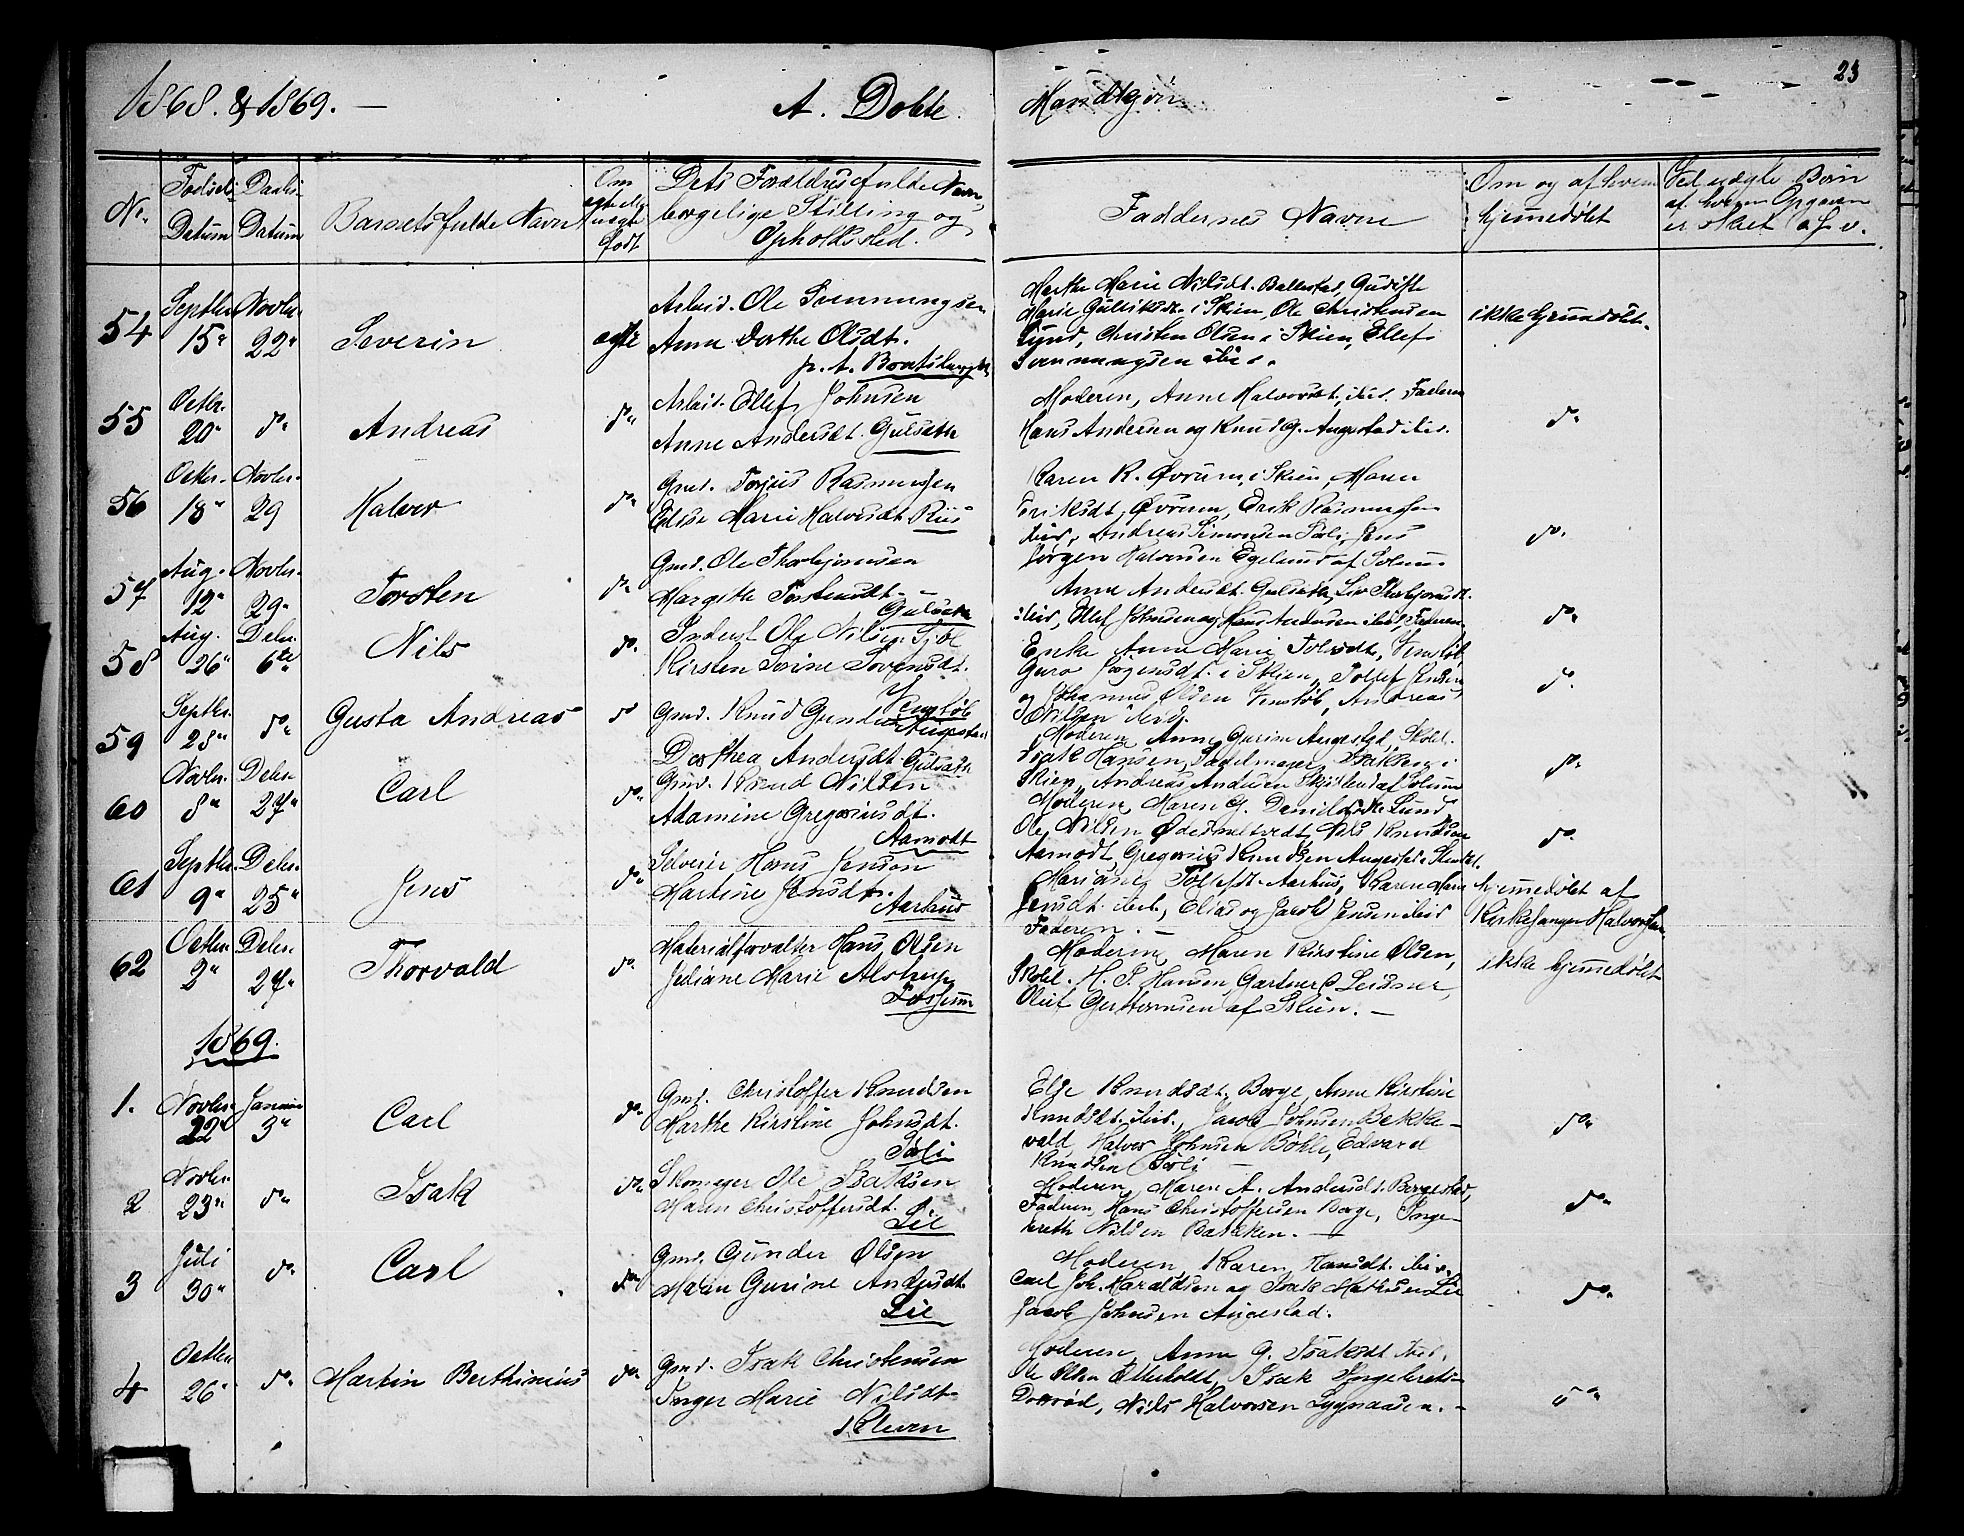 1868. & 1869. — A. Døbte. Mandkjøn. 23
No.
Fødsels Datum
Daabs Datum
Barnets fulde Navn
Om ægte el. uægte født
Dets Forældres fulde Navn, borgelige Stilling og Opholdssted.
Faddernes Navne
Om og af hvem hjemmedøbt
Ved uægte Børn af hvem Opgaven er sket o. s. v.
54 Septbr. 15" Novbr. 22" Severin ægte
Arbeid. Ole Svennungsen
Anne Dorthe Olsdt.
p. t. Bratsberg
Marthe Marie Nilsdt. Ballestad, Gudithe
Marie Gulliksdt. i Skien, Ole Christensen
Lund, Christen Olsen i Skien, Ellef
Svennungsen ibid.
ikke hjemmedøbt.
55 Octbr. 20" do Andreas do
Arbeid. Ellef Johnsen
Anne Andersdt. Gulseth
Moderen, Anne Halvorsdt. ibid. Faderen
Hans Andersen og Knud G. Augestad ibid.
do
56 Octbr. 18" Novbr. 29 Halvor do
Gmd. Torjus Rasmussen
Edise Marie Halvorsdt. Riis
Karen R. Øvrum i Skien, Maren
Eriksdt. Øvrum, Erik Rasmussen
ibid, Andreas Simonsen Sørli, Jens
Jørgen Halvorsen Egelund af Solum
do
57 Aug. 12" Novbr. 29" Torsten do
Gmd. Ole Thorbjørnsen
Margithe Torstensdt.
Gulseth
Anne Andersdt. Gulseth, Liv Thorbjørnsdt.
ibid, Ellef Johnsen og Hans Andersen ibid, Faderen
do
58 Aug. 26" Debr. 6te Nils do
Inderst Ole Nilsen
Kirsten Sørine Sørensdt.
Venstøb
Enke Anne Marie Tolvsdt. Venstøb,
Guro Jørgensdt. i Skien, Tollef Jensen
og Johannes Olsen Venstøb, Andreas
Nilsen ibid.
do
59 Septbr. 28" do Gusta Andreas do
Gmd. Knud Gundersen Augestad
Dorthea Andersdt. Gulseth
Moderen, Anne Gurine Augestad, Skolel.
Isak Hansen, Sadelmager Isaksen i
Skien, Andreas Andersen Skjelbred af Solum
do
60 Novbr. 8" Debr. 27" Carl do
Gmd. Knud Nilsen
Adamine Gregoriusdt.
Aamodt
Moderen, Maren G. Lund
Ole Nilsen Ødesneltvedt, Nils Knudsen
Aamodt, Gregorius Knudsen Augestad
do
61 Septbr. 9" Debr. 25" Jens do
Selveier Hans Jensen
Martine Jensdt.
Aarhus
Mariane Tolefsdt. Aarhus, Karen Marie
Jensdt. ibid, Elias og Jacob Jensen ibid
Faderen. —
hjemmedøbt af
Kirkesanger Halvorsen
62 Octbr. 2" Debr. 27" Thorvald do
Materialforvalter Hans Olsen
Juliane Marie Alstrup
Fossum
Moderen, Maren Kirstine Olsen,
Skolel. H. S. Hansen, Gartner C. Leisner,
Oluf Guttormsen af Skien. —
ikke hjemmedøbt
1869.
1. Novbr. 22" Januar 3" Carl do
Gmd. Christoffer Knudsen
Marthe Kirstine Johnsdt.
Sørli
Else Knudsdt. Borge, Anne Kirstine
Knudsdt. ibid, Jacob Johnsen Bekke-
vold, Halvor Johnsen Bøhle, Edvard
Knudsen Sørli —
do
2 Novbr. 23" do Isak do
Skomager Ole Isaksen
Maren Christoffersdt.
Lie
Moderen, Maren A. Andersdt. Bergestad,
Faderen, Hans Christoffersen Borge, Inge-
breth Nilsen Bakken. —
do
3 Juli 30" do Carl do
Gmd. Gunder Olsen
Maren Gurine Andersdt.
Lie
Moderen, Karen Hansdt. ibid,
Carl Joh. Haraldsen og Isak Mathisen Lie
Jacob Johnsen Augestad.
do
4 Octbr. 26" do Martin Berthinius do
Gmd. Isak Christensen
Inger Marie Nilsdt.
Kleven
Moderen, Anne G. Isaksdt. ibid,
Ole Olsen Otterholdt, Isak Ingebrets-
Dottrød, Nils Halvorsen Lyngaasen. —
do